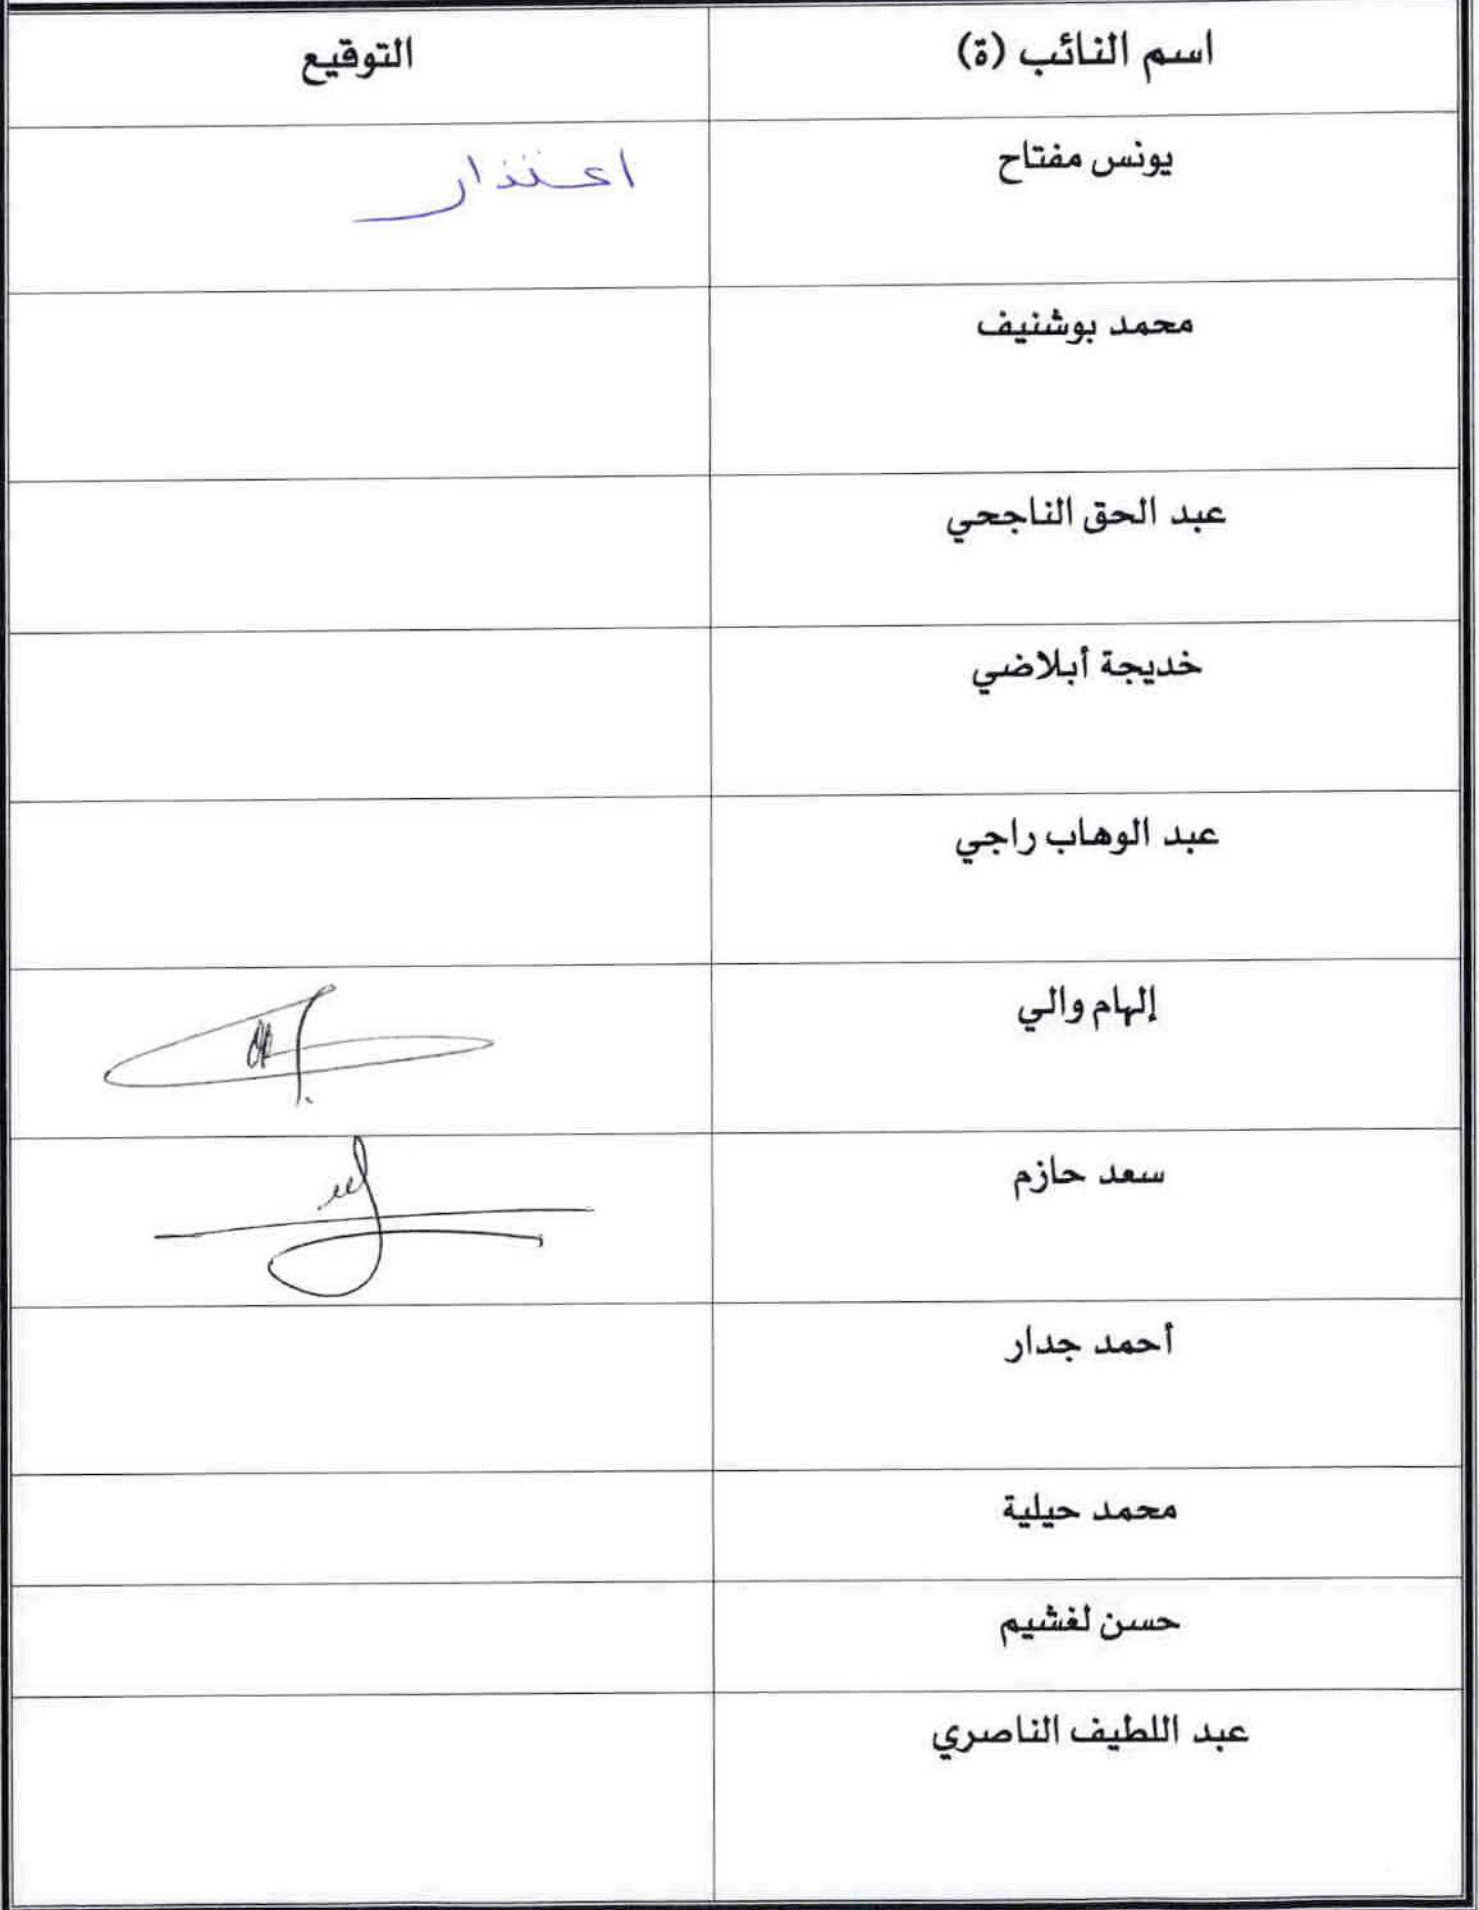 اسم النائب (ة) التوقيع
يونس مفتاح اعتذار
محمد بوشنيف
عبد الحق الناجحي
خديجة أبلاضي
عبد الوهاب راجي
إلهام والي
سعد حازم
أحمد جدار
محمد حيلية
حسن لغشيم
عبد اللطيف الناصري